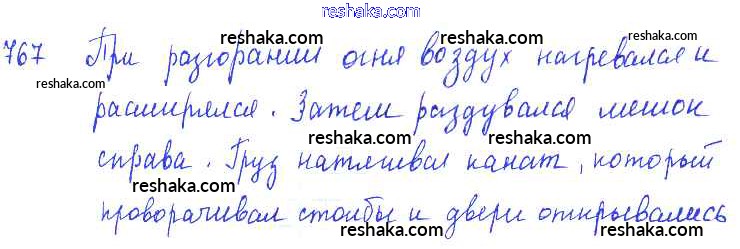 reshaka.com
767 При разгорании огня воздух нагревался и
reshaka.com reshaka.com reshaka.com
расширялся. Затем раздувался мешок
reshaka.com reshaka.com
справа. Груз натягивал канат, который
reshaka.com reshaka.com reshaka.com
проворачивал столбы и двери открывались
reshaka.com reshaka.com